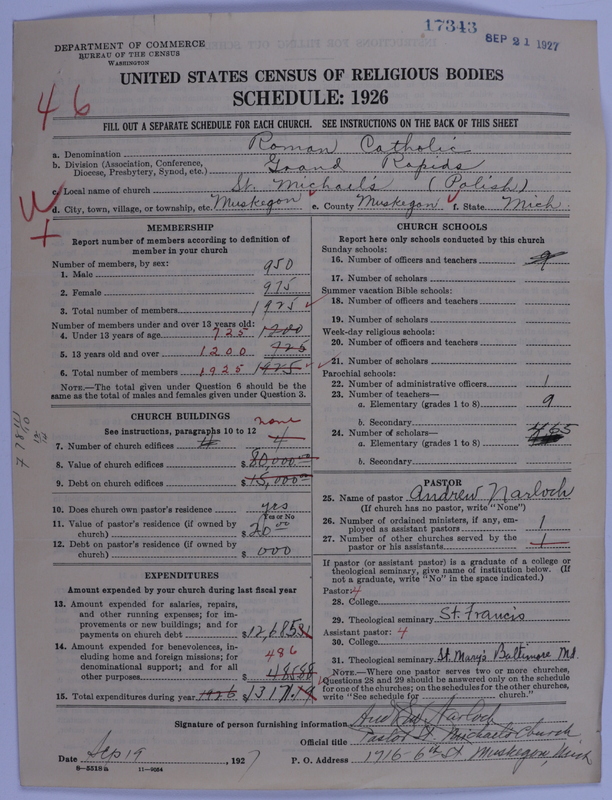 17343 SEP 21 1927
DEPARTMENT OF COMMERCE
BUREAU OF THE CENSUS
WASHINGTON
UNITED STATES CENSUS OF RELIGIOUS BODIES
SCHEDULE: 1926
46
FILL OUT A SEPARATE SCHEDULE FOR EACH CHURCH. SEE INSTRUCTIONS ON THE BACK OF THIS SHEET
a. Denomination Roman Catholic
b. Division (Association, Conference, Diocese, Presbytery, Synod, etc.) Grand Rapids
c. Local name of church St. Michael's (Polish)
d. City, town, village, or township, etc. Muskegon e. County Muskegon f. State Mich
MEMBERSHIP
Report number of members according to definition of
member in your church
Number of members, by sex:
1. Male 950
2. Female 975
3. Total number of members 1925
Number of members under and over 13 years old:
4. Under 13 years of age 725 1200
5. 13 years old and over 1200 725
6. Total number of members 1925 1925
NOTE.—The total given under Question 6 should be
same as the total of males and females given under Question 3.
CHURCH BUILDINGS
See instructions, paragraphs 10 to 12 none
7. Number of church edifices 4
8. Value of church edifices $ 80,000.00
9. Debt on church edifices $ 15,000.00
10. Does church own pastor's residence yes
Yes or No
11. Value of pastor's residence (if owned by
church) $ 20 00
12. Debt on pastor's residence (if owned by
church) $ 000
EXPENDITURES
Amount expended by your church during last fiscal year
13. Amount expended for salaries, repairs,
and other running expenses; for im-
provements or new buildings; and for
payments on church debt $ 12,685
14. Amount expended for benevolences, in-
cluding home and foreign missions; for
denominational support; and for all
other purposes 486
15. Total expenditures during year 1926 $ 13171
CHURCH SCHOOLS
Report here only schools conducted by this church
Sunday schools:
16. Number of officers and teachers 9
17. Number of scholars
Summer vacation Bible schools:
18. Number of officers and teachers
19. Number of scholars
Week-day religious schools:
20. Number of officers and teachers
21. Number of scholars
Parochial schools:
22. Number of administrative officers 1
23. Number of teachers—
a. Elementary (grades 1 to 8) 9
b. Secondary
24. Number of scholars—
a. Elementary (grades 1 to 8) 465
b. Secondary
PASTOR
25. Name of pastor Andrew Narloch
(If church has no pastor, write "None")
26. Number of ordained ministers, if any, em-
ployed as assistant pastors 1
27. Number of other churches served by the
pastor or his assistants 1
If pastor (or assistant pastor) is a graduate of a college or
theological seminary, give name of institution below. (If
not a graduate, write "No" in the space indicated.)
Pastor: 4
28. College
29. Theological seminary St. Francis
Assistant pastor: 4
30. College
31. Theological seminary St. Mary's Baltimore Md.
NOTE.—Where one pastor serves two or more churches,
Questions 28 and 29 should be answered only on the schedule
for one of the churches; on the schedules for the other churches,
write "See schedule for church."
Signature of person furnishing information Andrew Narloch
Official title Pastor St. Michael's Church
Date Sep 19, 1927 P. O. Address 1716-6th St. Muskegon Mich
8-5518a 11-9054